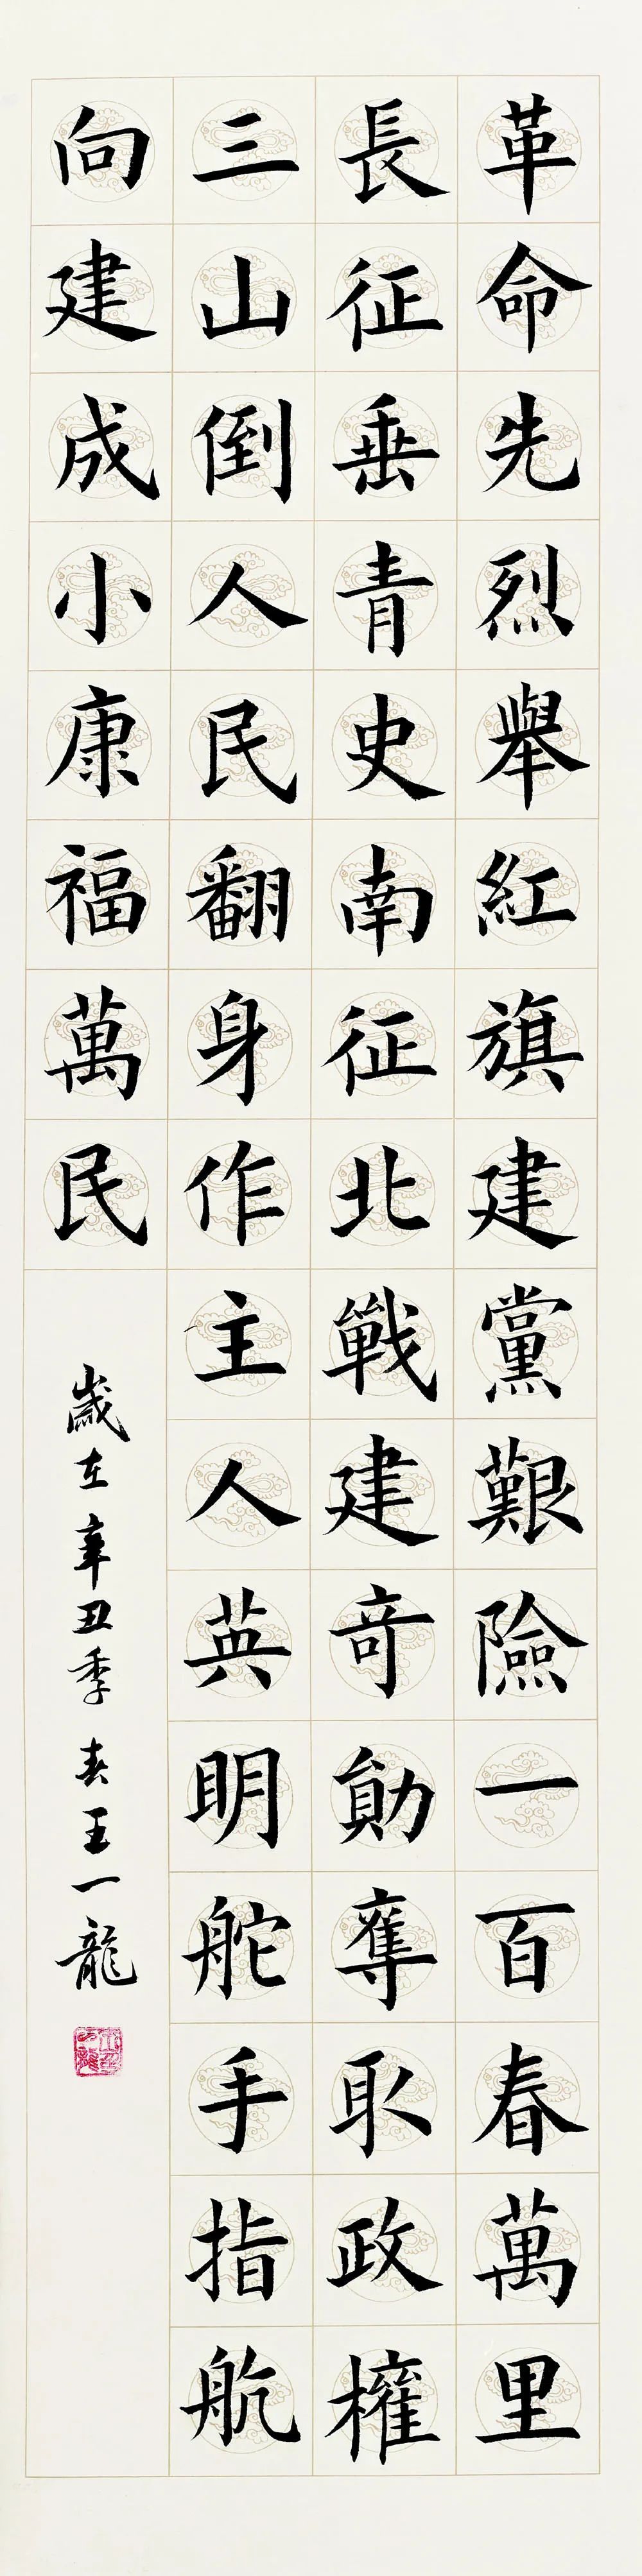 革命先烈舉紅旗建黨艱險一百春萬里
長征垂青史南征北戰建奇勛奪取政權
三山倒人民翻身作主人英明舵手指航
向建成小康福萬民
歲在辛丑季春王一龍